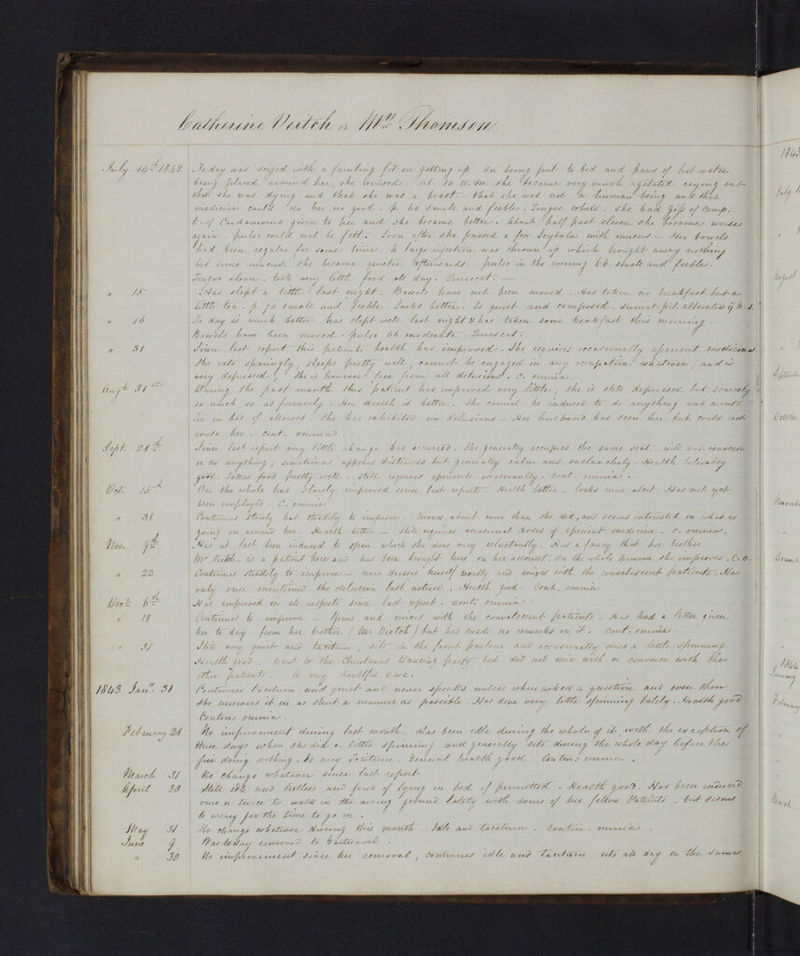 Catherine Veitch or Mrs Thomson
July 14th 1842 Today was seized with a fainting fit on getting up. On being put to bed and pans of hot water
being placed around her, she revived. At she became very much agitated crying out
that she was dying and that she was a beast. that she was not a human being and that
medicine could do her no good. p. 60 small and feeble. Tongue white. She had of Comp.
t. of Cardamoms given to her and she became better. About half past eleven she became worse
again. pulse could not be felt. Soon after she passed a few Scybala with mucus. Her bowels
had been regular for some time. A large injection was thrown up which brought away nothing
but some mucus. She became quieter afterwards. pulse in the evening 66. small and feeble.
Tongue clean. took very little food all day. Quiescat. —
" 15 Has slept a little last night. Bowels have not been moved. Has taken no breakfast but a
little tea. p. 70 small and feeble. Looks better. Is quiet and composed. Sumat pil.
" 16 To day is much better has slept well last night & has taken some breakfast this morning.
Bowels have been moved. pulse 66 moderate. Quiescat.
" 31 Since last report this patients health has improved. She requires occasionally aperient medicines
She eats sparingly, sleeps pretty well, cannot be engaged in any occupation whatever, and is
very depressed, She is however free from all delusions. C. omnia.
Augt 31st During the past month this patient has improved very little, she is still depressed but scarcely
so much so as formerly. Her health is better. She cannot be induced to do anything and would
lie in bed if allowed. She has exhibited no delusions. Her husband has seen her but could not
rouse her. cont. omnia.
Sept. 28th Since last report very little change has occurred. She generally occupies the same seat. will not converse
or do anything; sometimes appears distressed but generally calm and melancholy. Health tolerably
good. takes food pretty well. still requires aperients occasionally. Cont. omnia.
Oct. 15th On the whole has slowly improved since last report. Health better. looks more alert. Has not yet
been employed. C. omnia.
" 31 Continues slowly but steadily to improve. Moves about more than she did, and seems interested in what is
going on around her. Health better — still requires occasional doses of aperient medicine. C. omnia.
Nov. 9th Has at last been induced to spin which she does very reluctantly. Has a fancy that her brother
Mr Veitch is a patient here and has been brought here on her account. On the whole however she improves. C. O.
" 22 Continues steadily to improve — now dresses herself neatly and mixes with the convalescent patients. Has
only once mentioned the delusion last noticed. Health good. Cont. omnia.
Decr 6th Has improved in all respects since last report. cont. omnia.
" 18 Continues to improve. Spins and mixes with the convalescent patients. Has had a letter given
her to day from her brother (Mr Veitch) but has made no remarks on it. cont. omnia.
" 31 Still very quiet and taciturn, sits in the front parlour and occasionally does a little spinning.
Health good. Went to the Christmas Dancing party but did not mix with or converse with the
other patients. A very doubtful case.
1843 Jany. 31 Continues taciturn and quiet and never speaks unless when asked a question and even then
she answers it in as short a manner as possible. Has done very little spinning lately. Health good
Contin. omnia.
February 28 No improvement during last month. Has been idle during the whole of it, with the exception of
three days when she did a little spinning and generally sits during the whole day before the
fire doing nothing. Is very taciturn. General health good. Contin. omnia.
March 31 No change whatever since last report
April 30 Still idle and listless and fond of lying in bed if permitted. Health good. Has been induced
once or twice to walk in the airing ground lately with some of her fellow Patients — but seems
to weary for the time to go in.
May 31 No change whatever during this month. Idle and taciturn. Contin. omnia
June 9 Was to day removed to
" 30 No improvement since her removal, continues idle and taciturn, sits all day in the same
1843
July
August
September
October
1844
January
February
March